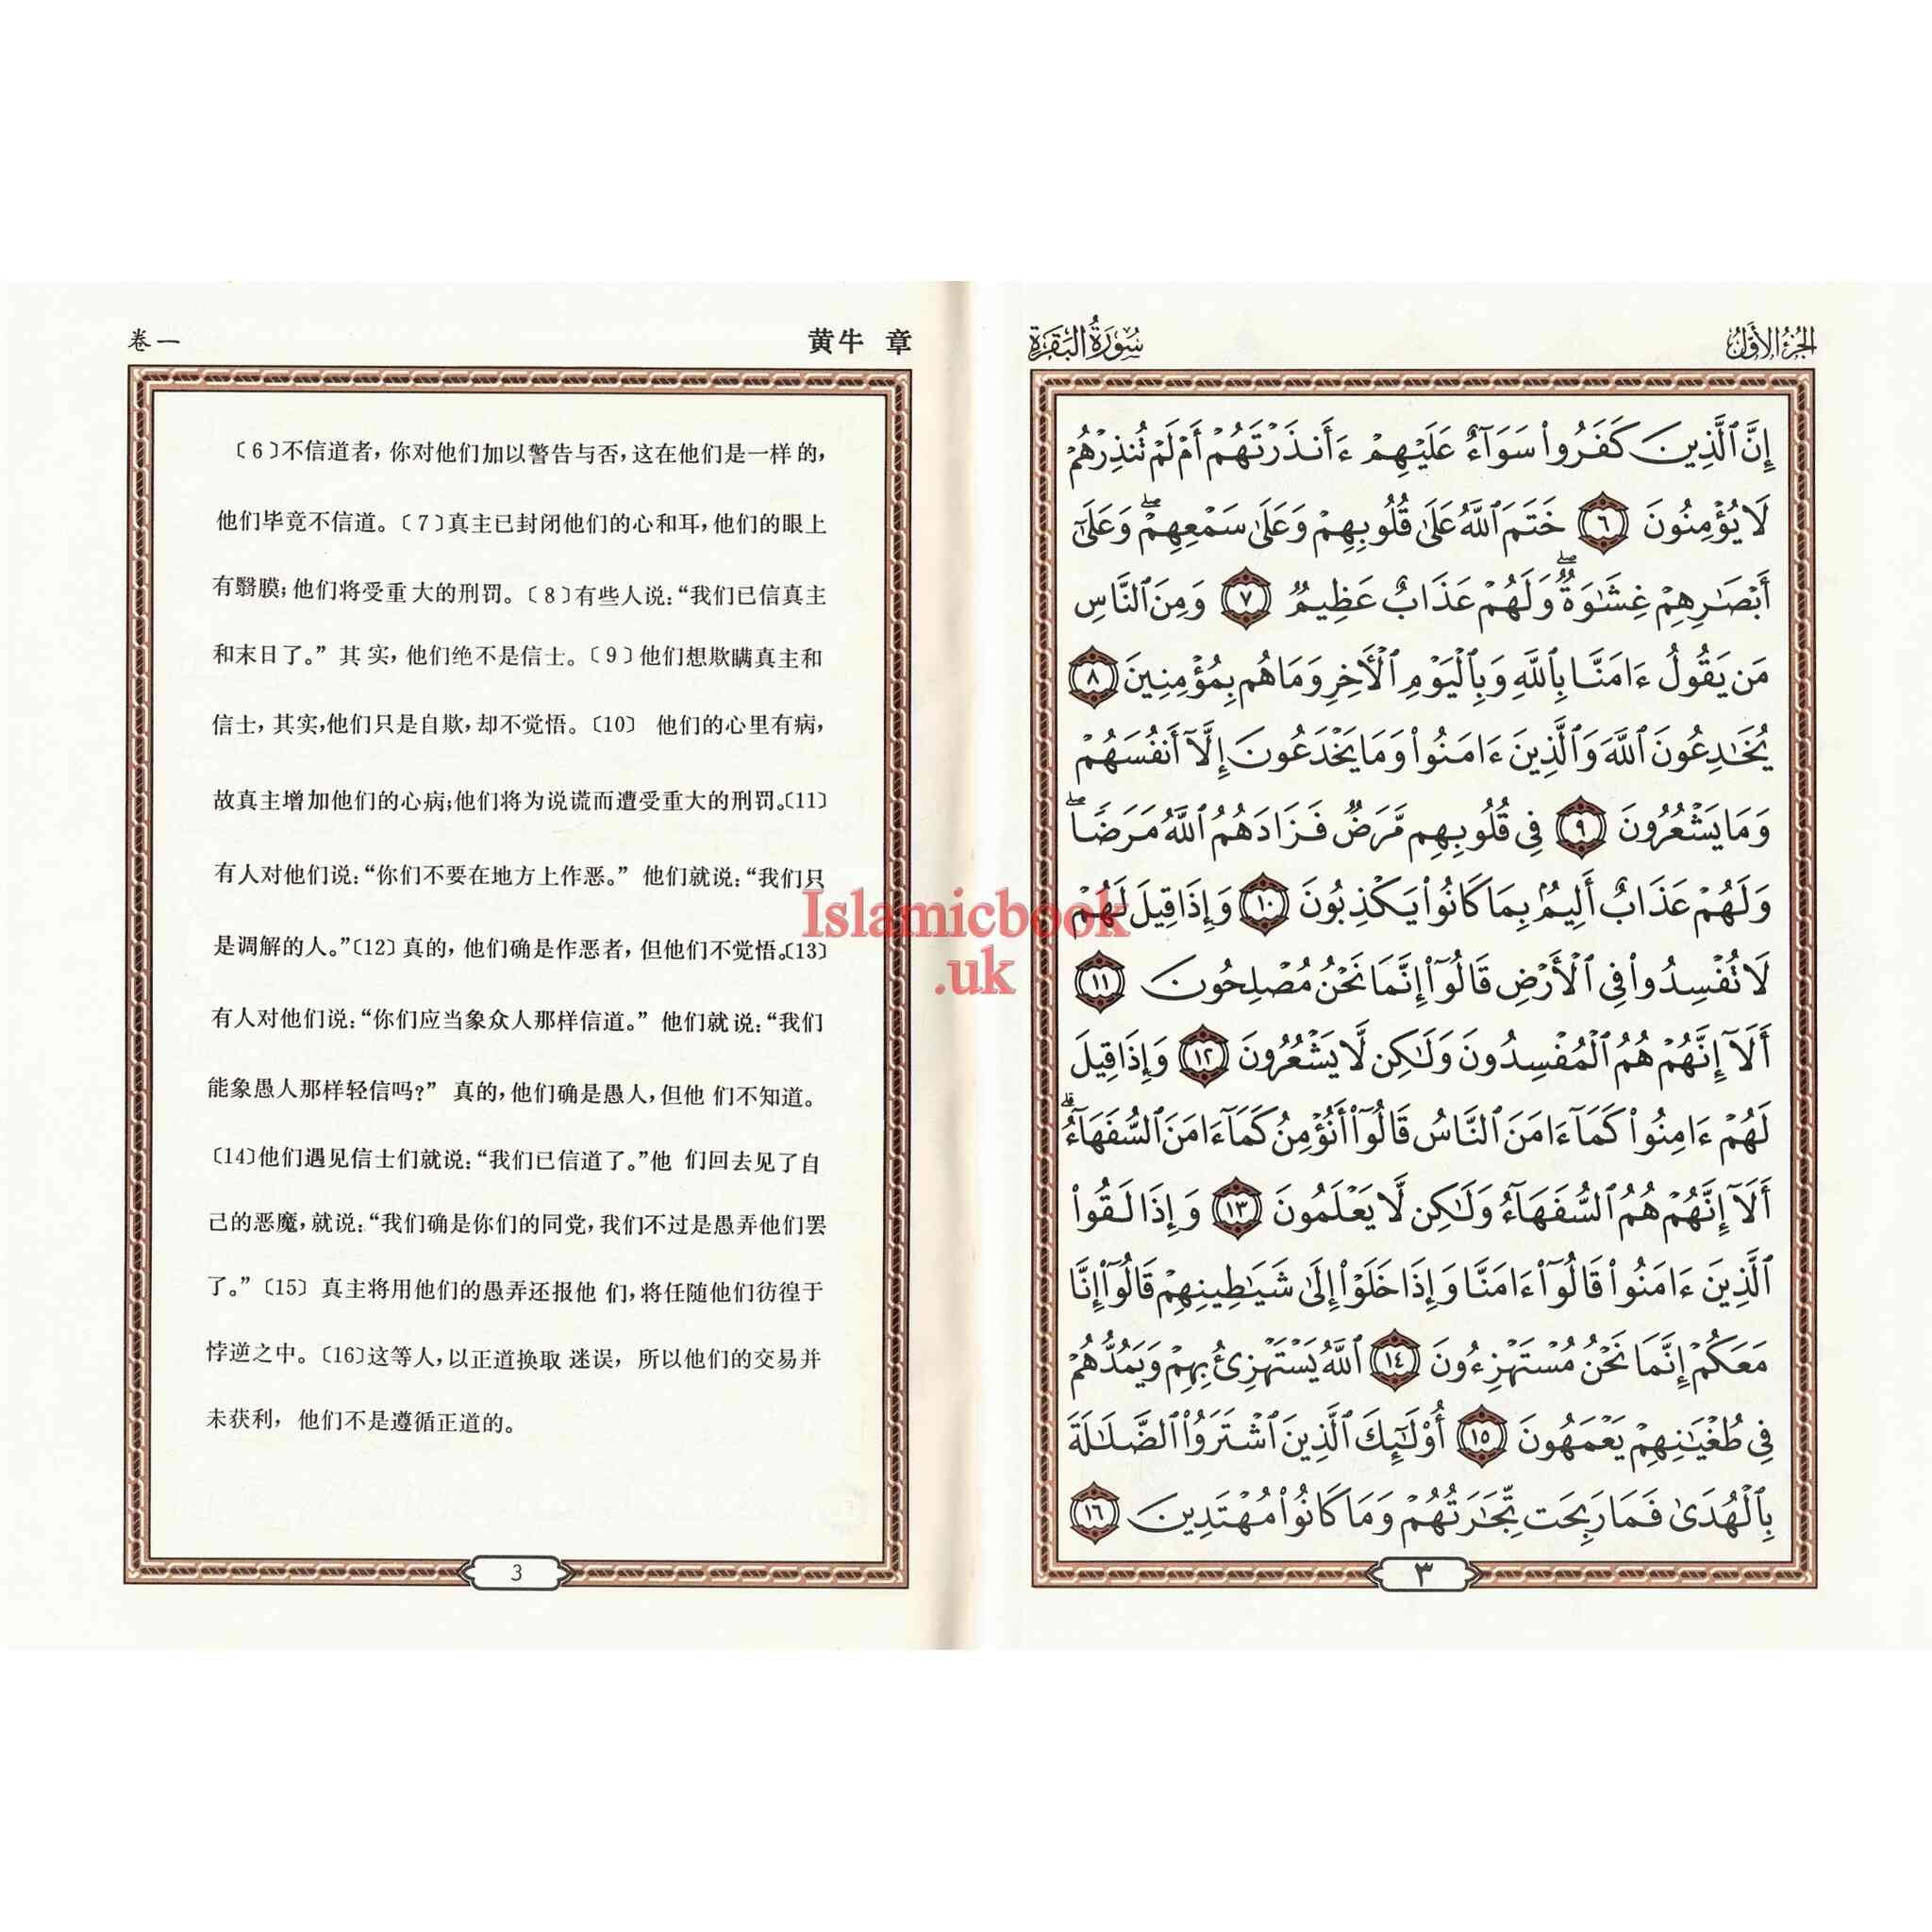 卷一
黄牛 章
〔6〕不信道者，你对他们加以警告与否，这在他们是一样的，
他们毕竟不信道。〔7〕真主已封闭他们的心和耳，他们的眼上
有翳膜；他们将受重大的刑罚。〔8〕有些人说：“我们已信真主
和末日了。” 其实，他们绝不是信士。〔9〕他们想欺瞒真主和
信士，其实，他们只是自欺，却不觉悟。〔10〕 他们的心里有病，
故真主增加他们的心病；他们将为说谎而遭受重大的刑罚。〔11〕
有人对他们说：“你们不要在地方上作恶。” 他们就说：“我们只
是调解的人。”〔12〕真的，他们确是作恶者，但他们不觉悟。〔13〕
有人对他们说：“你们应当象众人那样信道。” 他们就说：“我们
能象愚人那样轻信吗？” 真的，他们确是愚人，但他们不知道。
〔14〕他们遇见信士们就说：“我们已信道了。”他们回去见了自
己的恶魔，就说：“我们确是你们的同党，我们不过是愚弄他们罢
了。”〔15〕 真主将用他们的愚弄还报他们，将任随他们彷徨于
悖逆之中。〔16〕这等人，以正道换取迷误，所以他们的交易并
未获利，他们不是遵循正道的。
3
الجزء الأول
سورة البقرة
إِنَّ ٱلَّذِينَ كَفَرُوا۟ سَوَآءٌ عَلَيْهِمْ ءَأَنذَرْتَهُمْ أَمْ لَمْ تُنذِرْهُمْ
لَا يُؤْمِنُونَ ٦ خَتَمَ ٱللَّهُ عَلَىٰ قُلُوبِهِمْ وَعَلَىٰ سَمْعِهِمْ ۖ وَعَلَىٰٓ
أَبْصَـٰرِهِمْ غِشَـٰوَةٌ ۖ وَلَهُمْ عَذَابٌ عَظِيمٌ ٧ وَمِنَ ٱلنَّاسِ
مَن يَقُولُ ءَامَنَّا بِٱللَّهِ وَبِٱلْيَوْمِ ٱلْـَٔاخِرِ وَمَا هُم بِمُؤْمِنِينَ ٨
يُخَـٰدِعُونَ ٱللَّهَ وَٱلَّذِينَ ءَامَنُوا۟ وَمَا يَخْدَعُونَ إِلَّآ أَنفُسَهُمْ
وَمَا يَشْعُرُونَ ٩ فِى قُلُوبِهِم مَّرَضٌ فَزَادَهُمُ ٱللَّهُ مَرَضًا ۖ
وَلَهُمْ عَذَابٌ أَلِيمٌۢ بِمَا كَانُوا۟ يَكْذِبُونَ ١٠ وَإِذَا قِيلَ لَهُمْ
لَا تُفْسِدُوا۟ فِى ٱلْأَرْضِ قَالُوٓا۟ إِنَّمَا نَحْنُ مُصْلِحُونَ ١١
أَلَآ إِنَّهُمْ هُمُ ٱلْمُفْسِدُونَ وَلَـٰكِن لَّا يَشْعُرُونَ ١٢ وَإِذَا قِيلَ
لَهُمْ ءَامِنُوا۟ كَمَآ ءَامَنَ ٱلنَّاسُ قَالُوٓا۟ أَنُؤْمِنُ كَمَآ ءَامَنَ ٱلسُّفَهَآءُ ۗ
أَلَآ إِنَّهُمْ هُمُ ٱلسُّفَهَآءُ وَلَـٰكِن لَّا يَعْلَمُونَ ١٣ وَإِذَا لَقُوا۟
ٱلَّذِينَ ءَامَنُوا۟ قَالُوٓا۟ ءَامَنَّا وَإِذَا خَلَوْا۟ إِلَىٰ شَيَـٰطِينِهِمْ قَالُوٓا۟ إِنَّا
مَعَكُمْ إِنَّمَا نَحْنُ مُسْتَهْزِءُونَ ١٤ ٱللَّهُ يَسْتَهْزِئُ بِهِمْ وَيَمُدُّهُمْ
فِى طُغْيَـٰنِهِمْ يَعْمَهُونَ ١٥ أُو۟لَـٰٓئِكَ ٱلَّذِينَ ٱشْتَرَوُا۟ ٱلضَّلَـٰلَةَ
بِٱلْهُدَىٰ فَمَا رَبِحَت تِّجَـٰرَتُهُمْ وَمَا كَانُوا۟ مُهْتَدِينَ ١٦
٣
Islamicbook
.uk